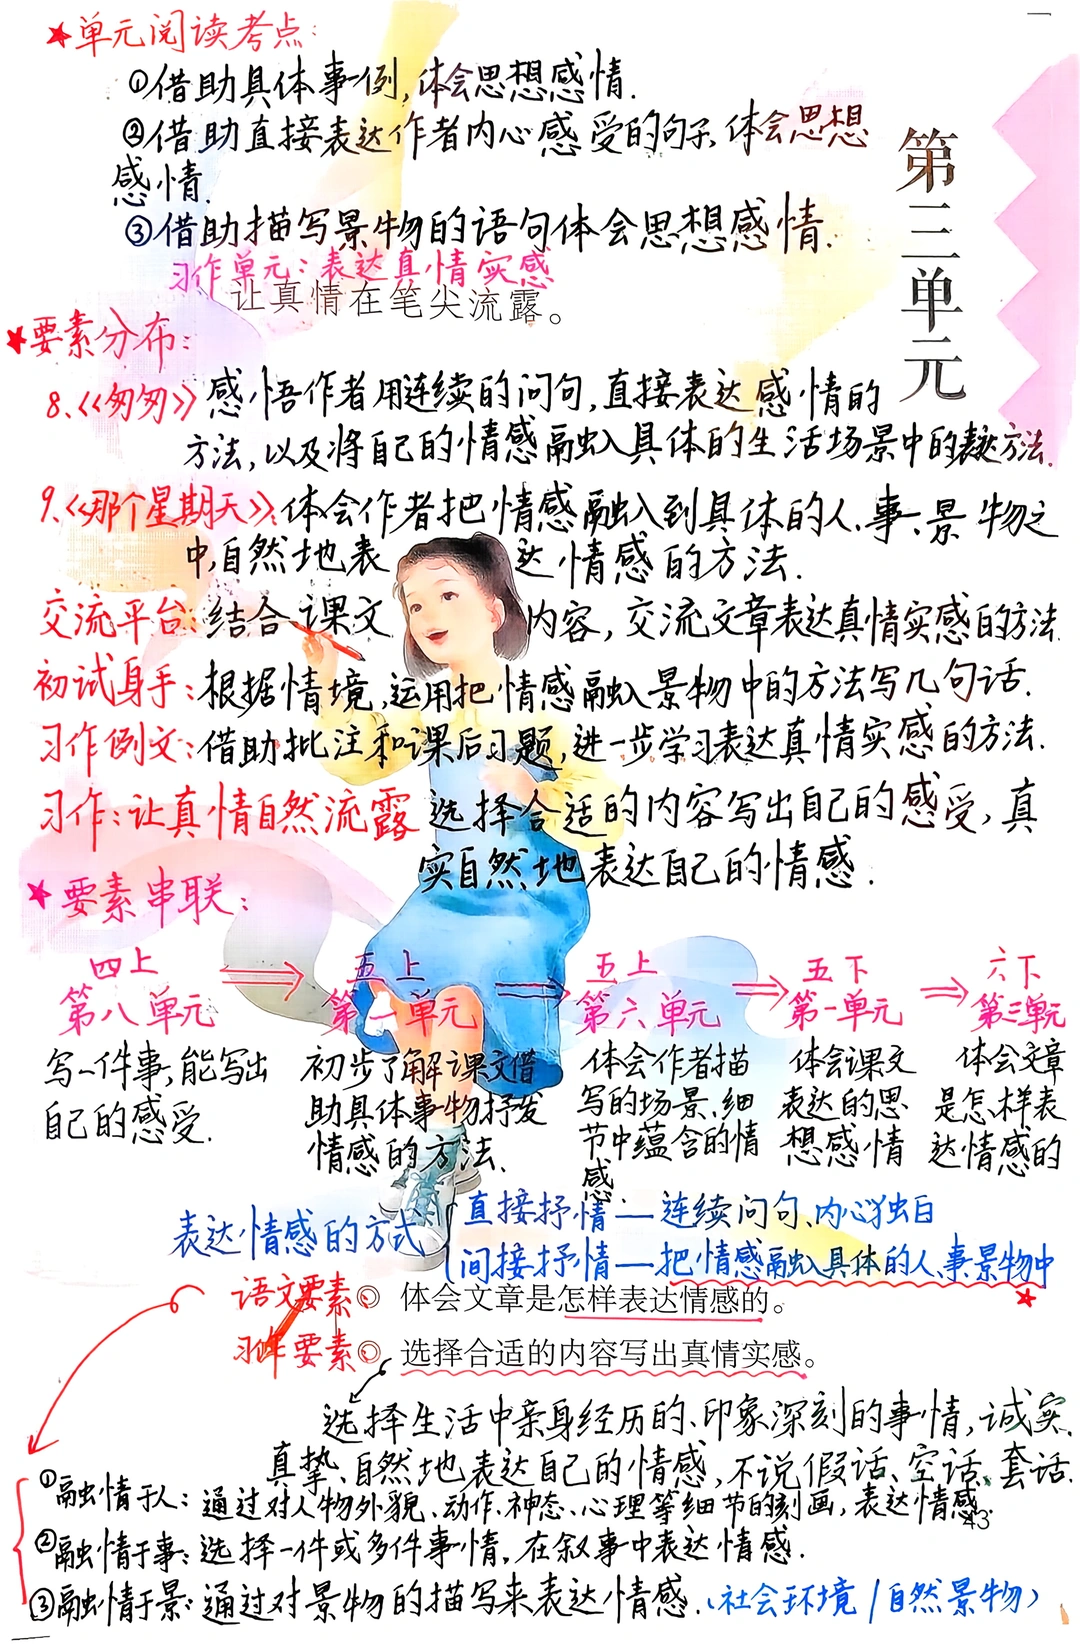 ★单元阅读考点:
①借助具体事例,体会思想感情.
②借助直接表达作者内心感受的句子、体会思想
感情.
③借助描写景物的语句体会思想感情.
第三单元
习作单元:表达真情实感
让真情在笔尖流露。
★要素分布:
8、《匆匆》感悟作者用连续的问句,直接表达感情的
方法,以及将自己的情感融入具体的生活场景中的表达方法.
9、《那个星期天》:体会作者把情感融入到具体的人、事、景物之
中,自然地表达情感的方法.
交流平台:结合课文内容,交流文章表达真情实感的方法.
初试身手:根据情境,运用把情感融入景物中的方法写几句话.
习作例文:借助批注和课后习题,进一步学习表达真情实感的方法.
习作:让真情自然流露 选择合适的内容写出自己的感受,真
实自然地表达自己的情感.
★要素串联:
四上 五上 五上 五下 六下
第八单元 第一单元 第六单元 第一单元 第三单元
写一件事,能写出 初步了解课文借 体会作者描 体会课文 体会文章
自己的感受. 助具体事物抒发 写的场景、细 表达的思 是怎样表
情感的方法、 节中蕴含的情 想感情 达情感的
感
表达情感的方式 直接抒情—连续问句、内心独白
间接抒情—把情感融入具体的人、事、景物中
★
语文要素◎ 体会文章是怎样表达情感的。
习作要素◎ 选择合适的内容写出真情实感。
选择生活中亲身经历的、印象深刻的事情,诚实、
真挚、自然地表达自己的情感,不说假话、空话、套话.
①融情于人:通过对人物外貌、动作、神态、心理等细节的刻画,表达情感.
43
②融情于事:选择一件或多件事情,在叙事中表达情感.
③融情于景:通过对景物的描写来表达情感.(社会环境/自然景物)